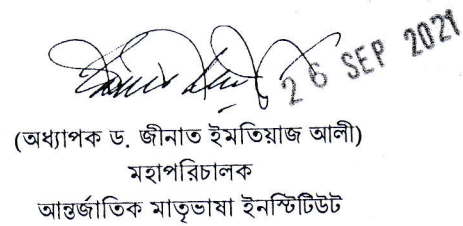 26 SEP 2021
(অধ্যাপক ড. জীনাত ইমতিয়াজ আলী)
মহাপরিচালক
আন্তর্জাতিক মাতৃভাষা ইনস্টিটিউট